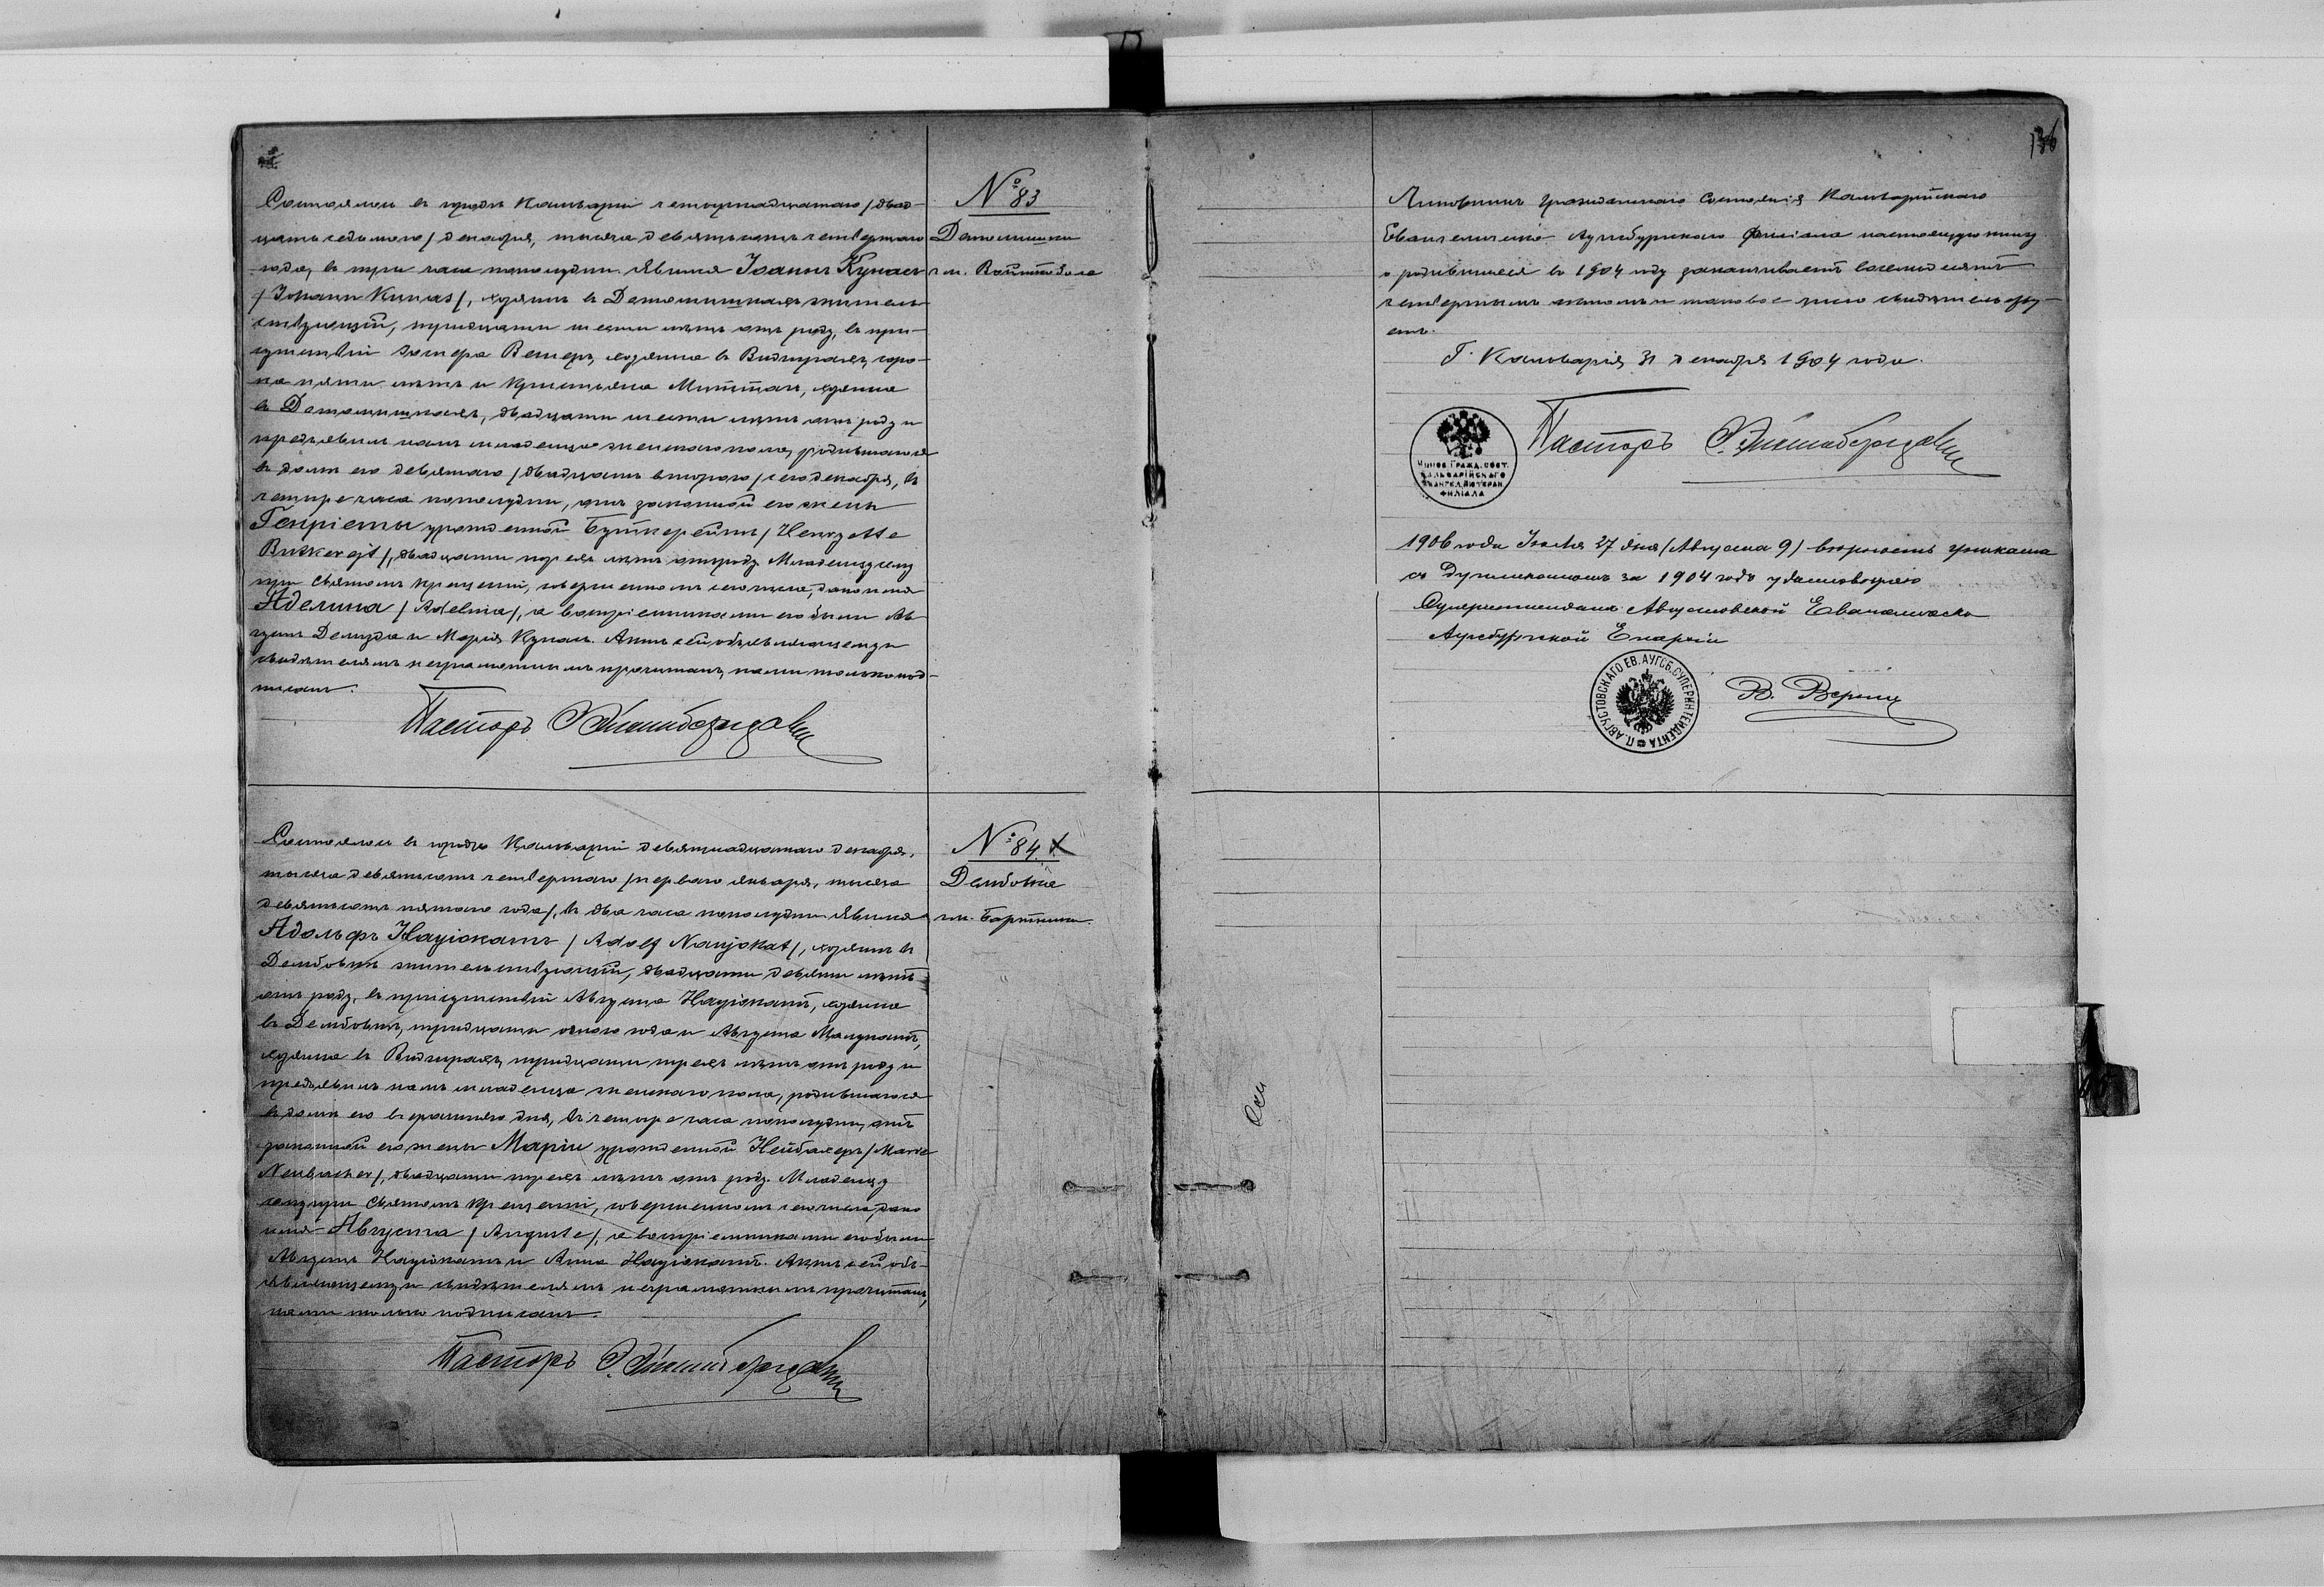 136
№ 83
Датомишки
гм. Войтовола
Состоялось въ городѣ Кальваріи четырнадцатаго /двад-
цать седьмого/ декабря, тысяча девятьсотъ четвертаго
года, въ три часа пополудни. Явился Іоаннъ Кунасъ
/Johann Kunas/, хозяинъ въ Датомишкахъ житель-
ствующій, тридцати шести лѣтъ отъ роду, въ при-
сутствіи хозяина въ Видгирахъ, соро-
ка пяти лѣтъ и Христьяна хозяина
въ Датомишкахъ, двадцати шести лѣтъ отъ роду и
предъявилъ намъ младенца женскаго пола, родившагося
въ домѣ его девятаго /двадцать второго/ сего декабря, въ
четыре часа пополудни, отъ законной его жены
Генріеты урожденной Буткерейтъ /Henryette
Butkerejt/, двадцати трехъ лѣтъ отъ роду. Младенцу сему
при Святомъ Крещеніи, совершенномъ сего числа, дано имя
Аделина /Adelina/, а воспріемниками его были Ав-
густъ и Марія Кунасъ. Актъ сей объявляющему и
свидѣтелямъ неграмотнымъ прочитанъ, нами только под-
писанъ.
Пасторъ
№ 84
Дембовка
гм. Бартники.
Состоялось въ городѣ Кальваріи девятнадцатаго декабря,
тысяча девятьсотъ четвертаго /перваго января, тысяча
девятьсотъ пятаго года/, въ два часа пополудни. Явился
Адольфъ Науіокатъ /Adolf Naujokat/, хозяинъ въ
Дембовкѣ жительствующій, двадцати девяти лѣтъ
отъ роду, въ присутствіи Августа Науіокатъ, хозяина
въ Дембовкѣ, тридцати одного года и Августа
хозяина въ Видгирахъ, тридцати трехъ лѣтъ отъ роду и
предъявилъ намъ младенца женскаго пола, родившагося
въ домѣ его вчерашняго дня, въ четыре часа пополудни, отъ
законной его жены Маріи урожденной Нейбахеръ /Marie
Neubacher/, двадцати трехъ лѣтъ отъ роду. Младенцу
сему при Святомъ Крещеніи, совершенномъ сего числа, дано
имя Августа /Auguste/, а воспріемниками его были
Августъ Науіокатъ и Анна Науіокатъ. Актъ сей объ-
являющему и свидѣтелямъ неграмотнымъ прочитанъ,
нами только подписанъ.
Пасторъ
Чиновникъ Гражданскаго Состоянія Кальварійскаго
Евангелическо-Аугсбургскаго Филіала настоящую книгу
о родившихся въ 1904 году заканчиваетъ восемьдесятъ
четвертымъ актомъ и таковое число свидѣтельству-
етъ.
Г. Кальварія, 31 декабря 1904 года.
Пасторъ
ЧИНОВ. ГРАЖД. СОСТ.
КАЛЬВАРІЙСКАГО
ЕВАНГЕЛ. ЛЮТЕРАН.
ФИЛІАЛА
1906 года Іюля 27 дня /Августа 9/ вѣрность униката
съ Дупликатомъ за 1904 годъ удостовѣряю
Суперинтендантъ Августовской Евангелическо
Аугсбургской Епархіи
П. АВГУСТОВСКАГО ЕВ. АУГСБ. СУПЕРИНТЕНДЕНТА